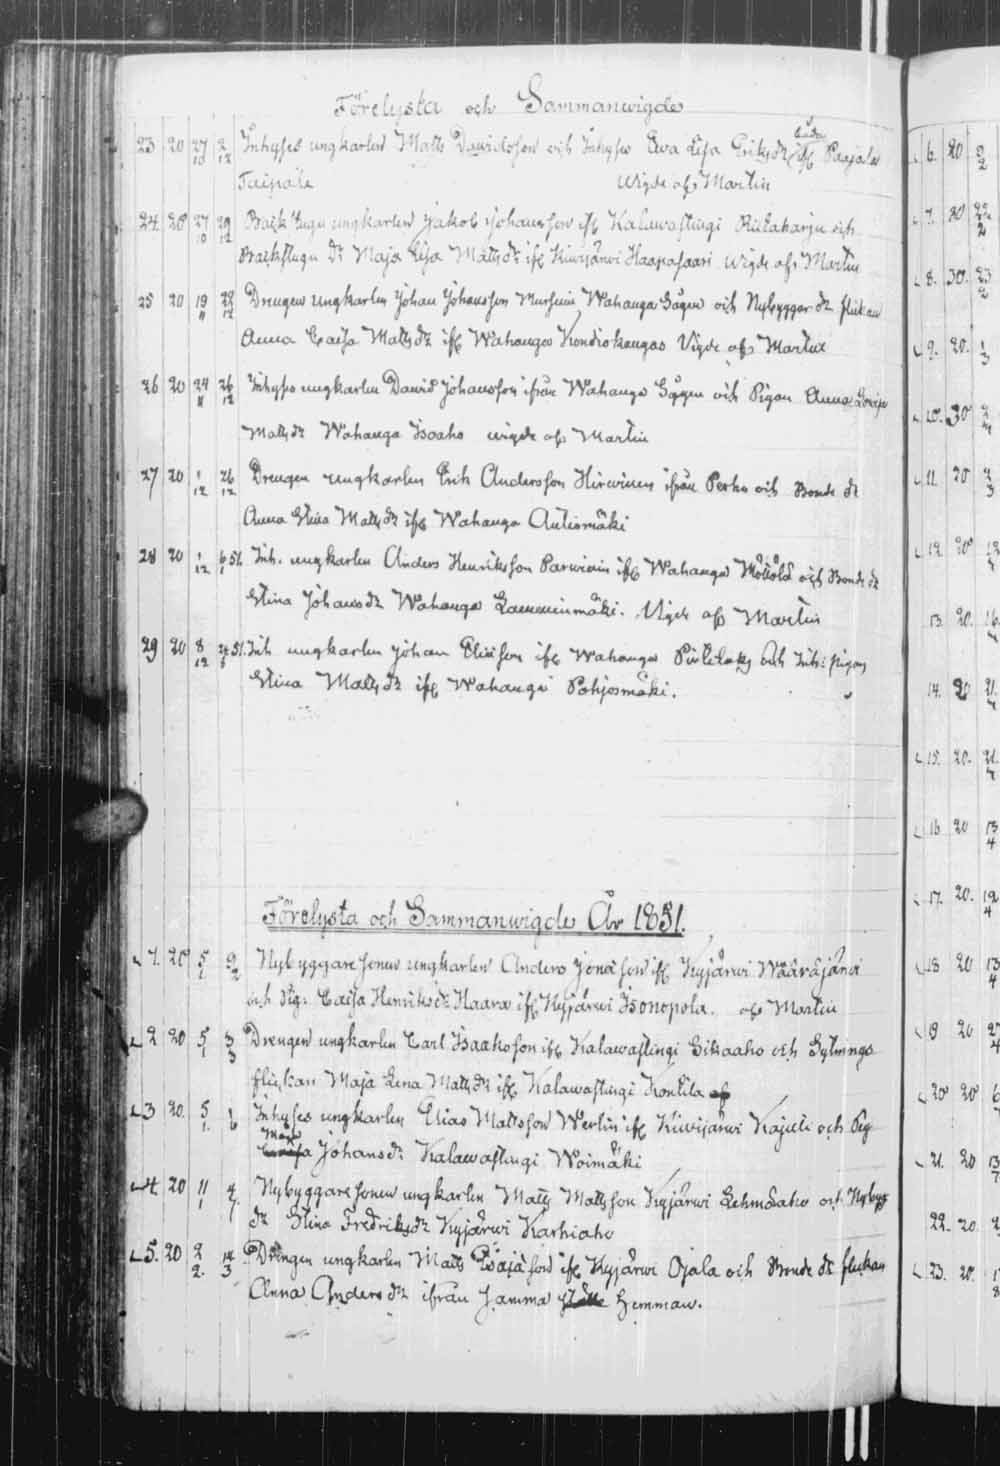 Förelysta och Sammanwigde
23 20 27/10 2/12 Inhyses ungkarlen Matts Davidsson och Inhyses Ewa Lisa Eriksdr Paajala
Taipale Wigde afs Martin
24. 20 27/10 29/12 Backstugu ungkarlen Jakob Johansson ifr Kalawastingi och
Backstugu Dr Maja Lisa Mattsdr ifr Kiwijärwi Haapasaari Wigde afs Martin
25 20 19/11 28/12 Drengen ungkarlen Johan Johansson Wahanga Sågen och Nybyggar dr flickan
Anna Caisa Mattsdr ifr Wahanga Kondiokangas Vigde afs Martin
26 20 24/11 26/12 Inhyses ungkarlen David Johansson ifrån Wahanga Sågen och Pigan Anna Lovisa
Mattsdr Wahanga Isoaho wigde afs Martin
27 20 1/12 26/12 Drengen ungkarlen Erik Andersson Hirwinen ifrån Perho och Bonde dr
Anna Stina Mattsdr ifr Wahanga Autiomäki
28 20 1/12 6/1 51. Inh. ungkarlen Anders Henriksson Parwiain ifr Wahanga och Bonde dr
Stina Johansdr Wahanga Lamminmäki. Vigde afs Martin
29 20 8/12 51. Inh ungkarlen Johan Eliasson ifr Wahanga och Inh: pigan
Stina Mattsdr ifr Wahanga Pohjosmäki.
Förelysta och Sammanwigde År 1851.
1. 20 5/1 9/2 Nybyggaresonen ungkarlen Anders Jonasson ifr Kyjärwi Wääräjärwi
och Pig: Caisa Henriksdr Haara ifr Kyjärwi Isonopola. afs Martin
2 20 5/1 3/3 Drengen ungkarlen Carl Isaaksson ifr Kalawastingi Sikaaho och Sytnings
flickan Maja Lena Mattsdr ifr Kalawastingi Kontila
3 20. 5/1. 1/6 Inhyses ungkarlen Elias Mattsson Werlin ifr Kiwijärwi och Pig
Maja Johansdr Kalawastingi Woimäki
4. 20 11/1 4/7. Nybyggaresonen ungkarlen Matts Mattsson Kyjärwi Lehmäaho och Nybygg
dr Stina Fredriksdr Kyjärwi Karhiaho
5. 20 2/2. 14/3 Drengen ungkarlen Matts Esaiasson ifr Kyjärwi Ojala och Bonde dr flickan
Anna Andersdr ifrån samma hemman.
6. 20
7. 20
8. 30. 23/2
9. 20. 1/3
10. 30
11. 20 2/3
12. 20
13. 20. 16
14. 20 21
15. 20. 21.
16 20 13/4
17. 20. 12/4
18 20 13/4
19 20 27/4
20 20 6
21. 20 13/7
22. 20.
23. 20.